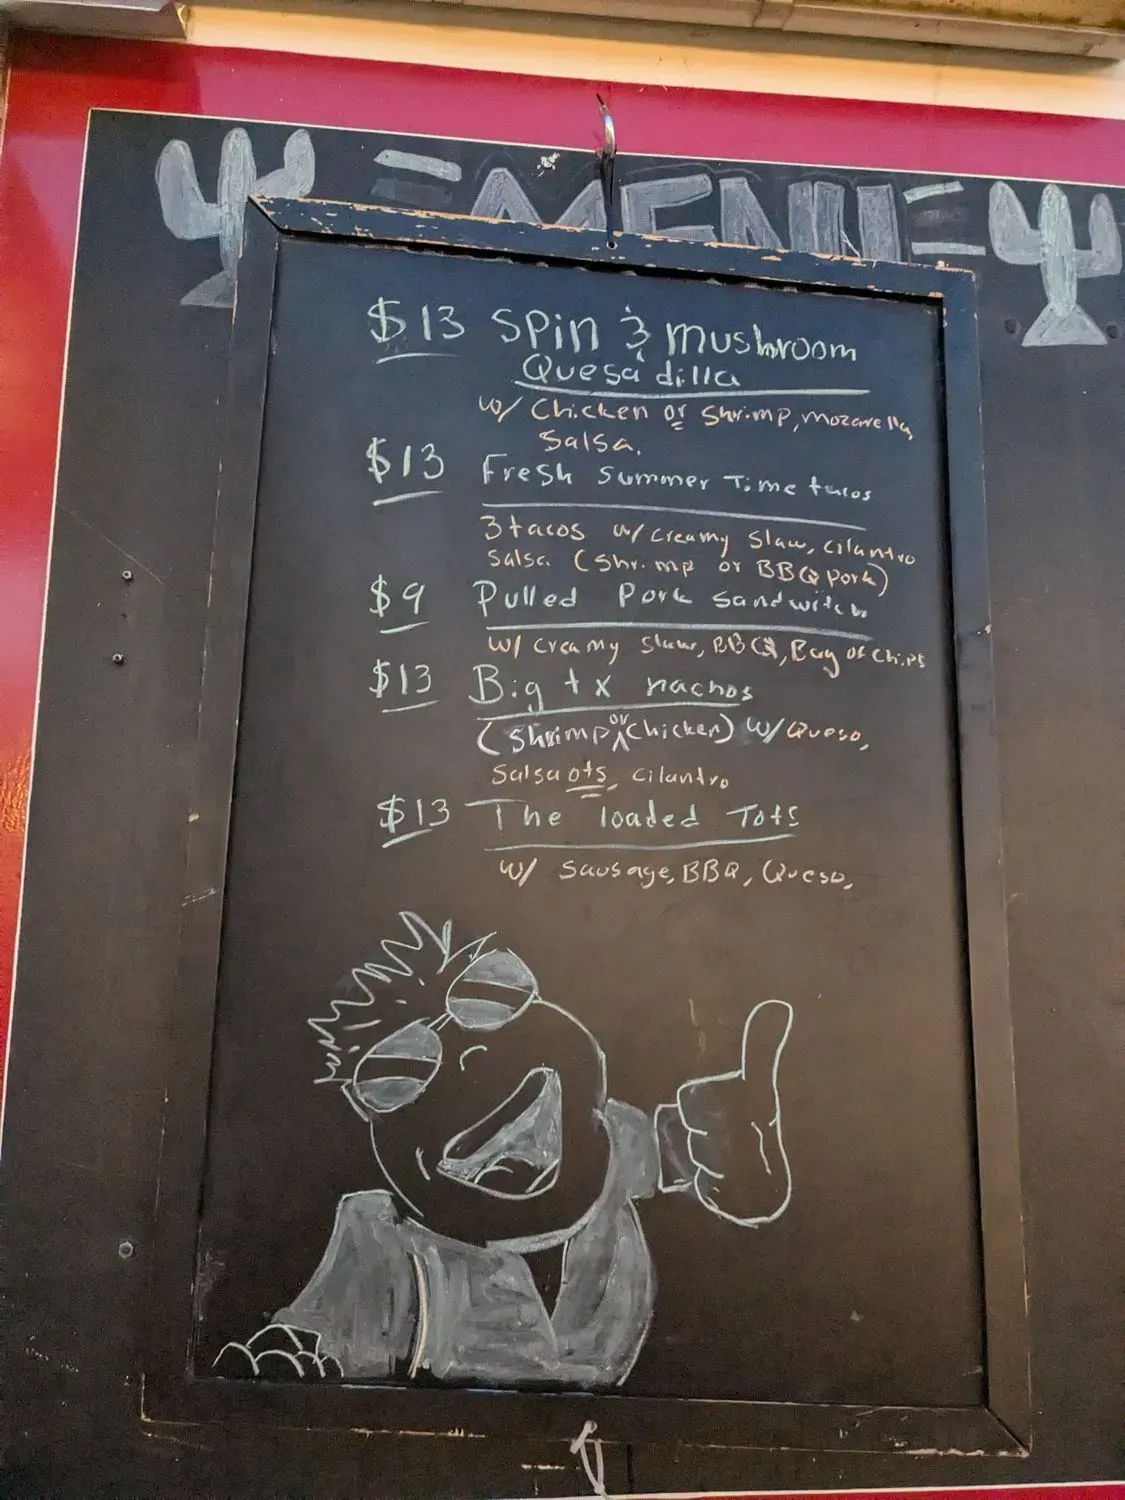 MENU
$13 Spin & mushroom
Quesadilla
w/ Chicken or Shrimp, mozarella,
Salsa.
$13 Fresh Summer Time tacos
3 tacos w/ creamy Slaw, cilantro
Salsa (Shrimp or BBQ pork)
$9 Pulled Pork Sandwitch
w/ creamy Slaw, BBQ, Bag of Chips
$13 Big tx nachos
(Shrimp or Chicken) w/ Queso,
Salsa ots, cilantro
$13 The loaded Tots
w/ Sausage, BBQ, Queso,